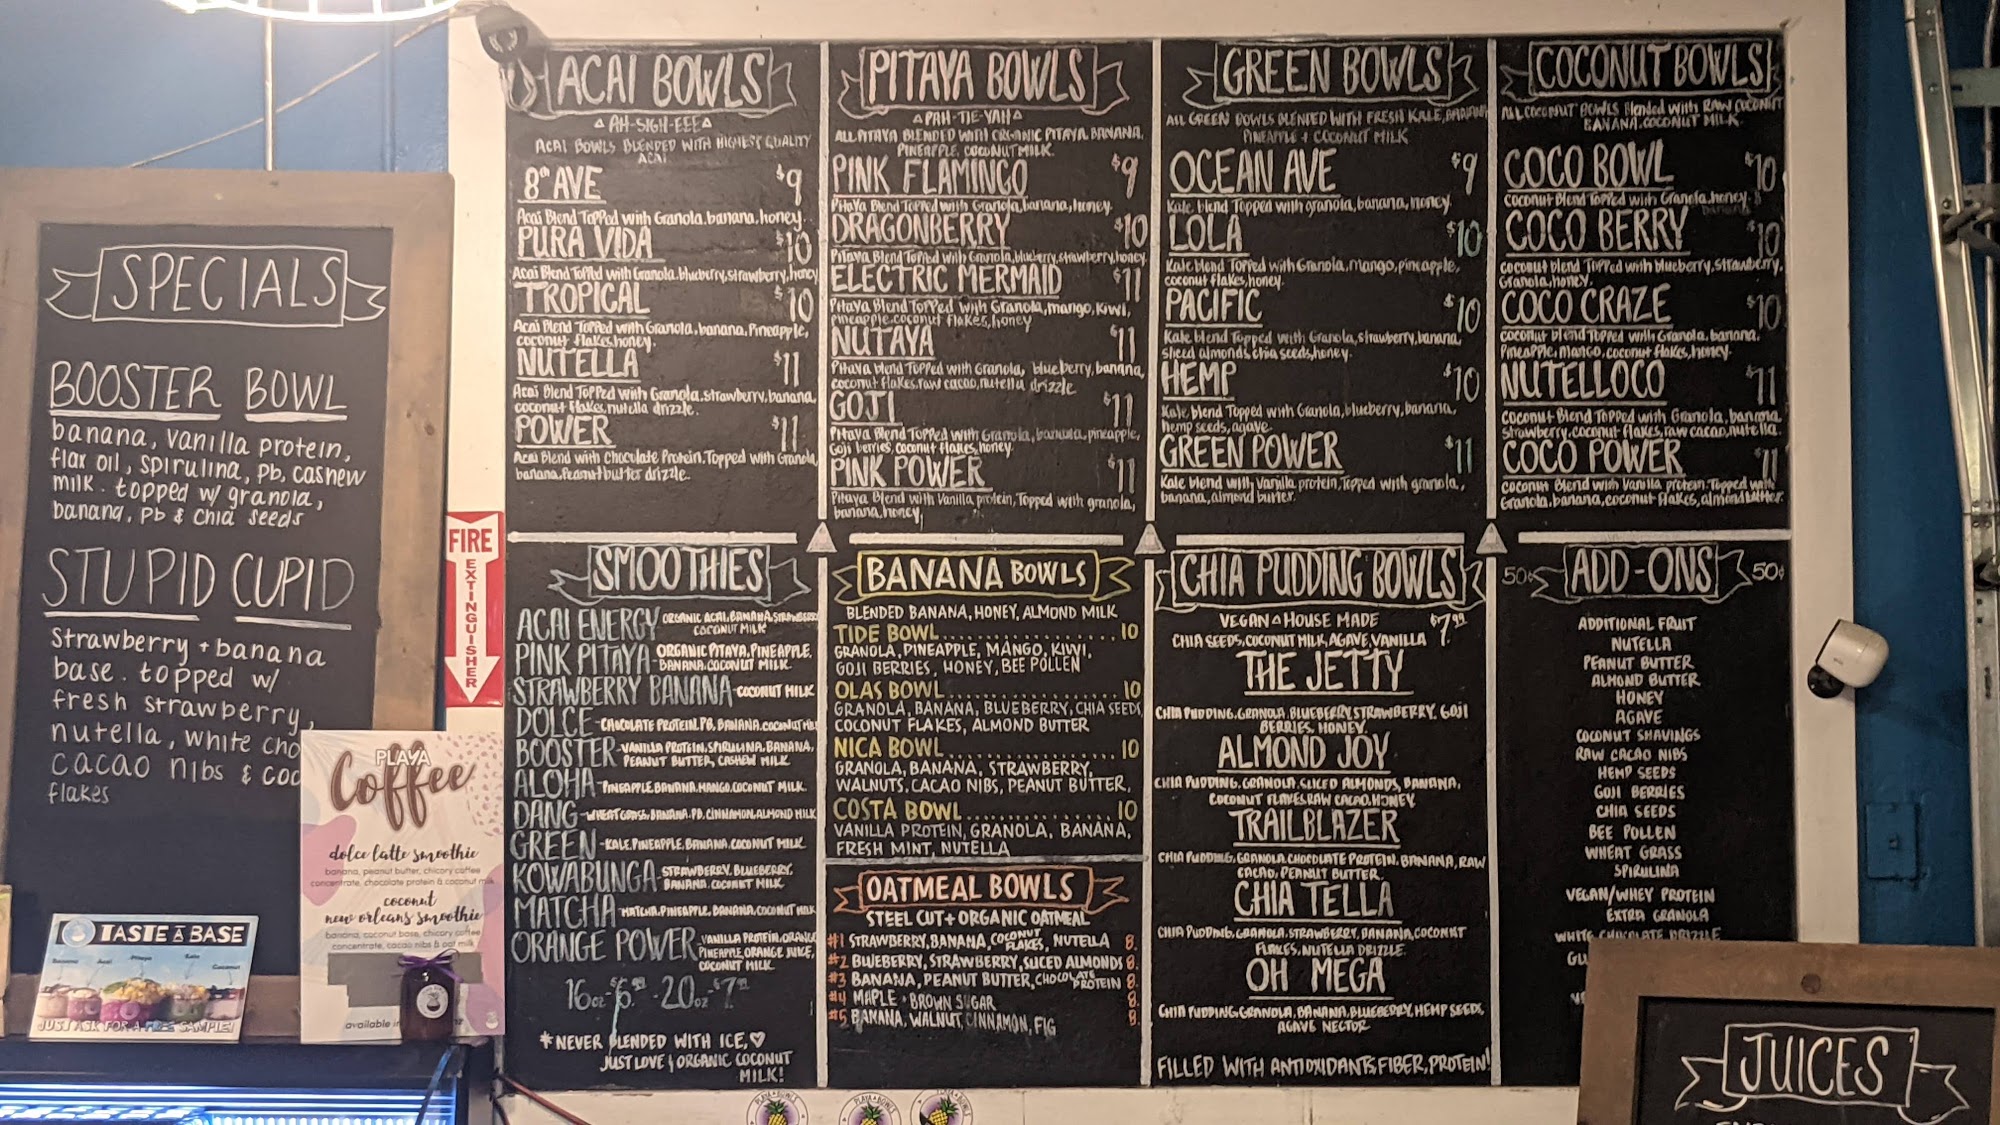 SPECIALS
BOOSTER BOWL
banana, vanilla protein,
flax oil, spirulina, Pb, cashew
milk. topped w/ granola,
banana, Pb & chia seeds
STUPID CUPID
strawberry + banana
base. topped w/
fresh strawberry,
nutella, white cho
cacao nibs & coc
flakes
PLAYA
Coffee
dolce latte smoothie
banana, peanut butter, chicory coffee
concentrate, chocolate protein & coconut milk
coconut
new orleans smoothie
banana, coconut base, chicory coffee
concentrate, cacao nibs & oat milk
available in
TASTE A BASE
Banana Acai Pitaya Kale Coconut
JUST ASK FOR A FREE SAMPLE!
FIRE
EXTINGUISHER
ACAI BOWLS
AH-SIGH-EEE
ACAI BOWLS BLENDED WITH HIGHEST QUALITY
ACAI
8th AVE $9
Acai Blend Topped with Granola, banana, honey.
PURA VIDA $10
Acai Blend Topped with Granola, blueberry, strawberry, honey
TROPICAL $10
Acai Blend Topped with Granola, banana, Pineapple,
coconut flakes, honey.
NUTELLA $11
Acai Blend Topped with Granola, strawberry, banana,
coconut flakes, nutella drizzle.
POWER $11
Acai Blend with Chocolate Protein. Topped with Granola,
banana, Peanut butter drizzle.
PITAYA BOWLS
PAH-TIE-YAH
ALL PITAYA BLENDED WITH ORGANIC PITAYA, BANANA,
PINEAPPLE, COCONUT MILK.
PINK FLAMINGO $9
Pitaya Blend Topped with Granola, banana, honey.
DRAGONBERRY $10
Pitaya Blend Topped with Granola, blueberry, strawberry, honey
ELECTRIC MERMAID $11
Pitaya Blend Topped with Granola, mango, Kiwi,
Pineapple, coconut flakes, honey
NUTAYA $11
Pitaya blend Topped with Granola, blueberry, banana,
coconut flakes, raw cacao, nutella drizzle
GOJI $11
Pitaya Blend Topped with Granola, banana, pineapple,
Goji berries, coconut flakes, honey.
PINK POWER $11
Pitaya Blend with Vanilla protein, Topped with granola,
banana, honey,
GREEN BOWLS
ALL GREEN BOWLS BLENTED WITH FRESH KALE, BANANA
PINEAPPLE + COCONUT MILK
OCEAN AVE $9
Kale blend Topped with granola, banana, honey.
LOLA $10
Kale blend Topped with Granola, mango, pineapple,
coconut flakes, honey.
PACIFIC $10
Kale blend Topped with Granola, strawberry, banana,
sliced almonds, chia seeds, honey.
HEMP $10
Kale blend Topped with Granola, blueberry, banana,
hemp seeds, agave.
GREEN POWER $11
Kale blend with Vanilla protein, Topped with granola,
banana, almond butter.
COCONUT BOWLS
ALL COCONUT BOWLS Blended with RAW COCONUT
BANANA, COCONUT MILK.
COCO BOWL $10
Coconut Blend Topped with Granola, honey. &
banana
COCO BERRY $10
coconut blend Topped with blueberry, strawberry,
Granola, honey.
COCO CRAZE $10
coconut blend Topped with Granola, banana,
Pineapple, mango, coconut flakes, honey.
NUTELLOCO $11
Coconut Blend Topped with Granola, banana
strawberry, coconut flakes, raw cacao, nutella.
COCO POWER $11
coconut Blend with Vanilla protein Topped with
Granola, banana, coconut flakes, almond butter.
SMOOTHIES
ACAI ENERGY ORGANIC ACAI, BANANA, STRAWBERRY
COCONUT MILK
PINK PITAYA- ORGANIC PITAYA, PINEAPPLE,
BANANA, COCONUT MILK.
STRAWBERRY BANANA-COCONUT MILK
DOLCE-CHOCOLATE PROTEIN, PB, BANANA, COCONUT MILK
BOOSTER-VANILLA PROTEIN, SPIRULINA, BANANA,
PEANUT BUTTER, CASHEW MILK
ALOHA-PINEAPPLE, BANANA, MANGO, COCONUT MILK.
DANG-WHEAT GRASS, BANANA, PB, CINNAMON, ALMOND MILK
GREEN-KALE, PINEAPPLE, BANANA, COCONUT MILK.
KOWABUNGA-STRAWBERRY, BLUEBERRY,
BANANA, COCONUT MILK.
MATCHA-MATCHA, PINEAPPLE, BANANA, COCONUT MILK
ORANGE POWER-VANILLA PROTEIN, ORANGE
PINEAPPLE, ORANGE JUICE,
COCONUT MILK.
16oz-$6.99 -20oz-$7.99
*NEVER BLENDED WITH ICE,♡
JUST LOVE & ORGANIC COCONUT
MILK!
BANANA BOWLS
BLENDED BANANA, HONEY, ALMOND MILK
TIDE BOWL 10
GRANOLA, PINEAPPLE, MANGO, KIWI,
GOJI BERRIES, HONEY, BEE POLLEN
OLAS BOWL 10
GRANOLA, BANANA, BLUEBERRY, CHIA SEEDS,
COCONUT FLAKES, ALMOND BUTTER
NICA BOWL 10
GRANOLA, BANANA, STRAWBERRY,
WALNUTS, CACAO NIBS, PEANUT BUTTER,
COSTA BOWL 10
VANILLA PROTEIN, GRANOLA, BANANA,
FRESH MINT, NUTELLA
OATMEAL BOWLS
STEEL CUT + ORGANIC OATMEAL
#1 STRAWBERRY, BANANA, COCONUT FLAKES, NUTELLA 8.
#2 BLUEBERRY, STRAWBERRY, SLICED ALMONDS 8.
#3 BANANA, PEANUT BUTTER, CHOCOLATE PROTEIN 8.
#4 MAPLE + BROWN SUGAR 8.
#5 BANANA, WALNUT, CINNAMON, FIG 8.
CHIA PUDDING BOWLS
VEGAN HOUSE MADE $7.99
CHIA SEEDS, COCONUT MILK, AGAVE, VANILLA
THE JETTY
CHIA PUDDING, GRANOLA, BLUEBERRY, STRAWBERRY, GOJI
BERRIES, HONEY.
ALMOND JOY
CHIA PUDDING, GRANOLA, SLICED ALMONDS, BANANA,
COCONUT FLAKES, RAW CACAO, HONEY
TRAILBLAZER
CHIA PUDDING, GRANOLA, CHOCOLATE PROTEIN, BANANA, RAW
CACAO, PEANUT BUTTER.
CHIA TELLA
CHIA PUDDING, GRANOLA, STRAWBERRY, BANANA, COCONUT
FLAKES, NUTELLA DRIZZLE.
OH MEGA
CHIA PUDDING, GRANOLA, BANANA, BLUEBERRY, HEMP SEEDS,
AGAVE NECTOR
FILLED WITH ANTIOXIDANTS, FIBER, PROTEIN!
50¢ ADD-ONS 50¢
ADDITIONAL FRUIT
NUTELLA
PEANUT BUTTER
ALMOND BUTTER
HONEY
AGAVE
COCONUT SHAVINGS
RAW CACAO NIBS
HEMP SEEDS
GOJI BERRIES
CHIA SEEDS
BEE POLLEN
WHEAT GRASS
SPIRULINA
VEGAN/WHEY PROTEIN
EXTRA GRANOLA
WHITE CHOCOLATE DRIZZLE
JUICES
PLAYA BOWLS
PLAYA BOWLS
PLAYA BOWLS